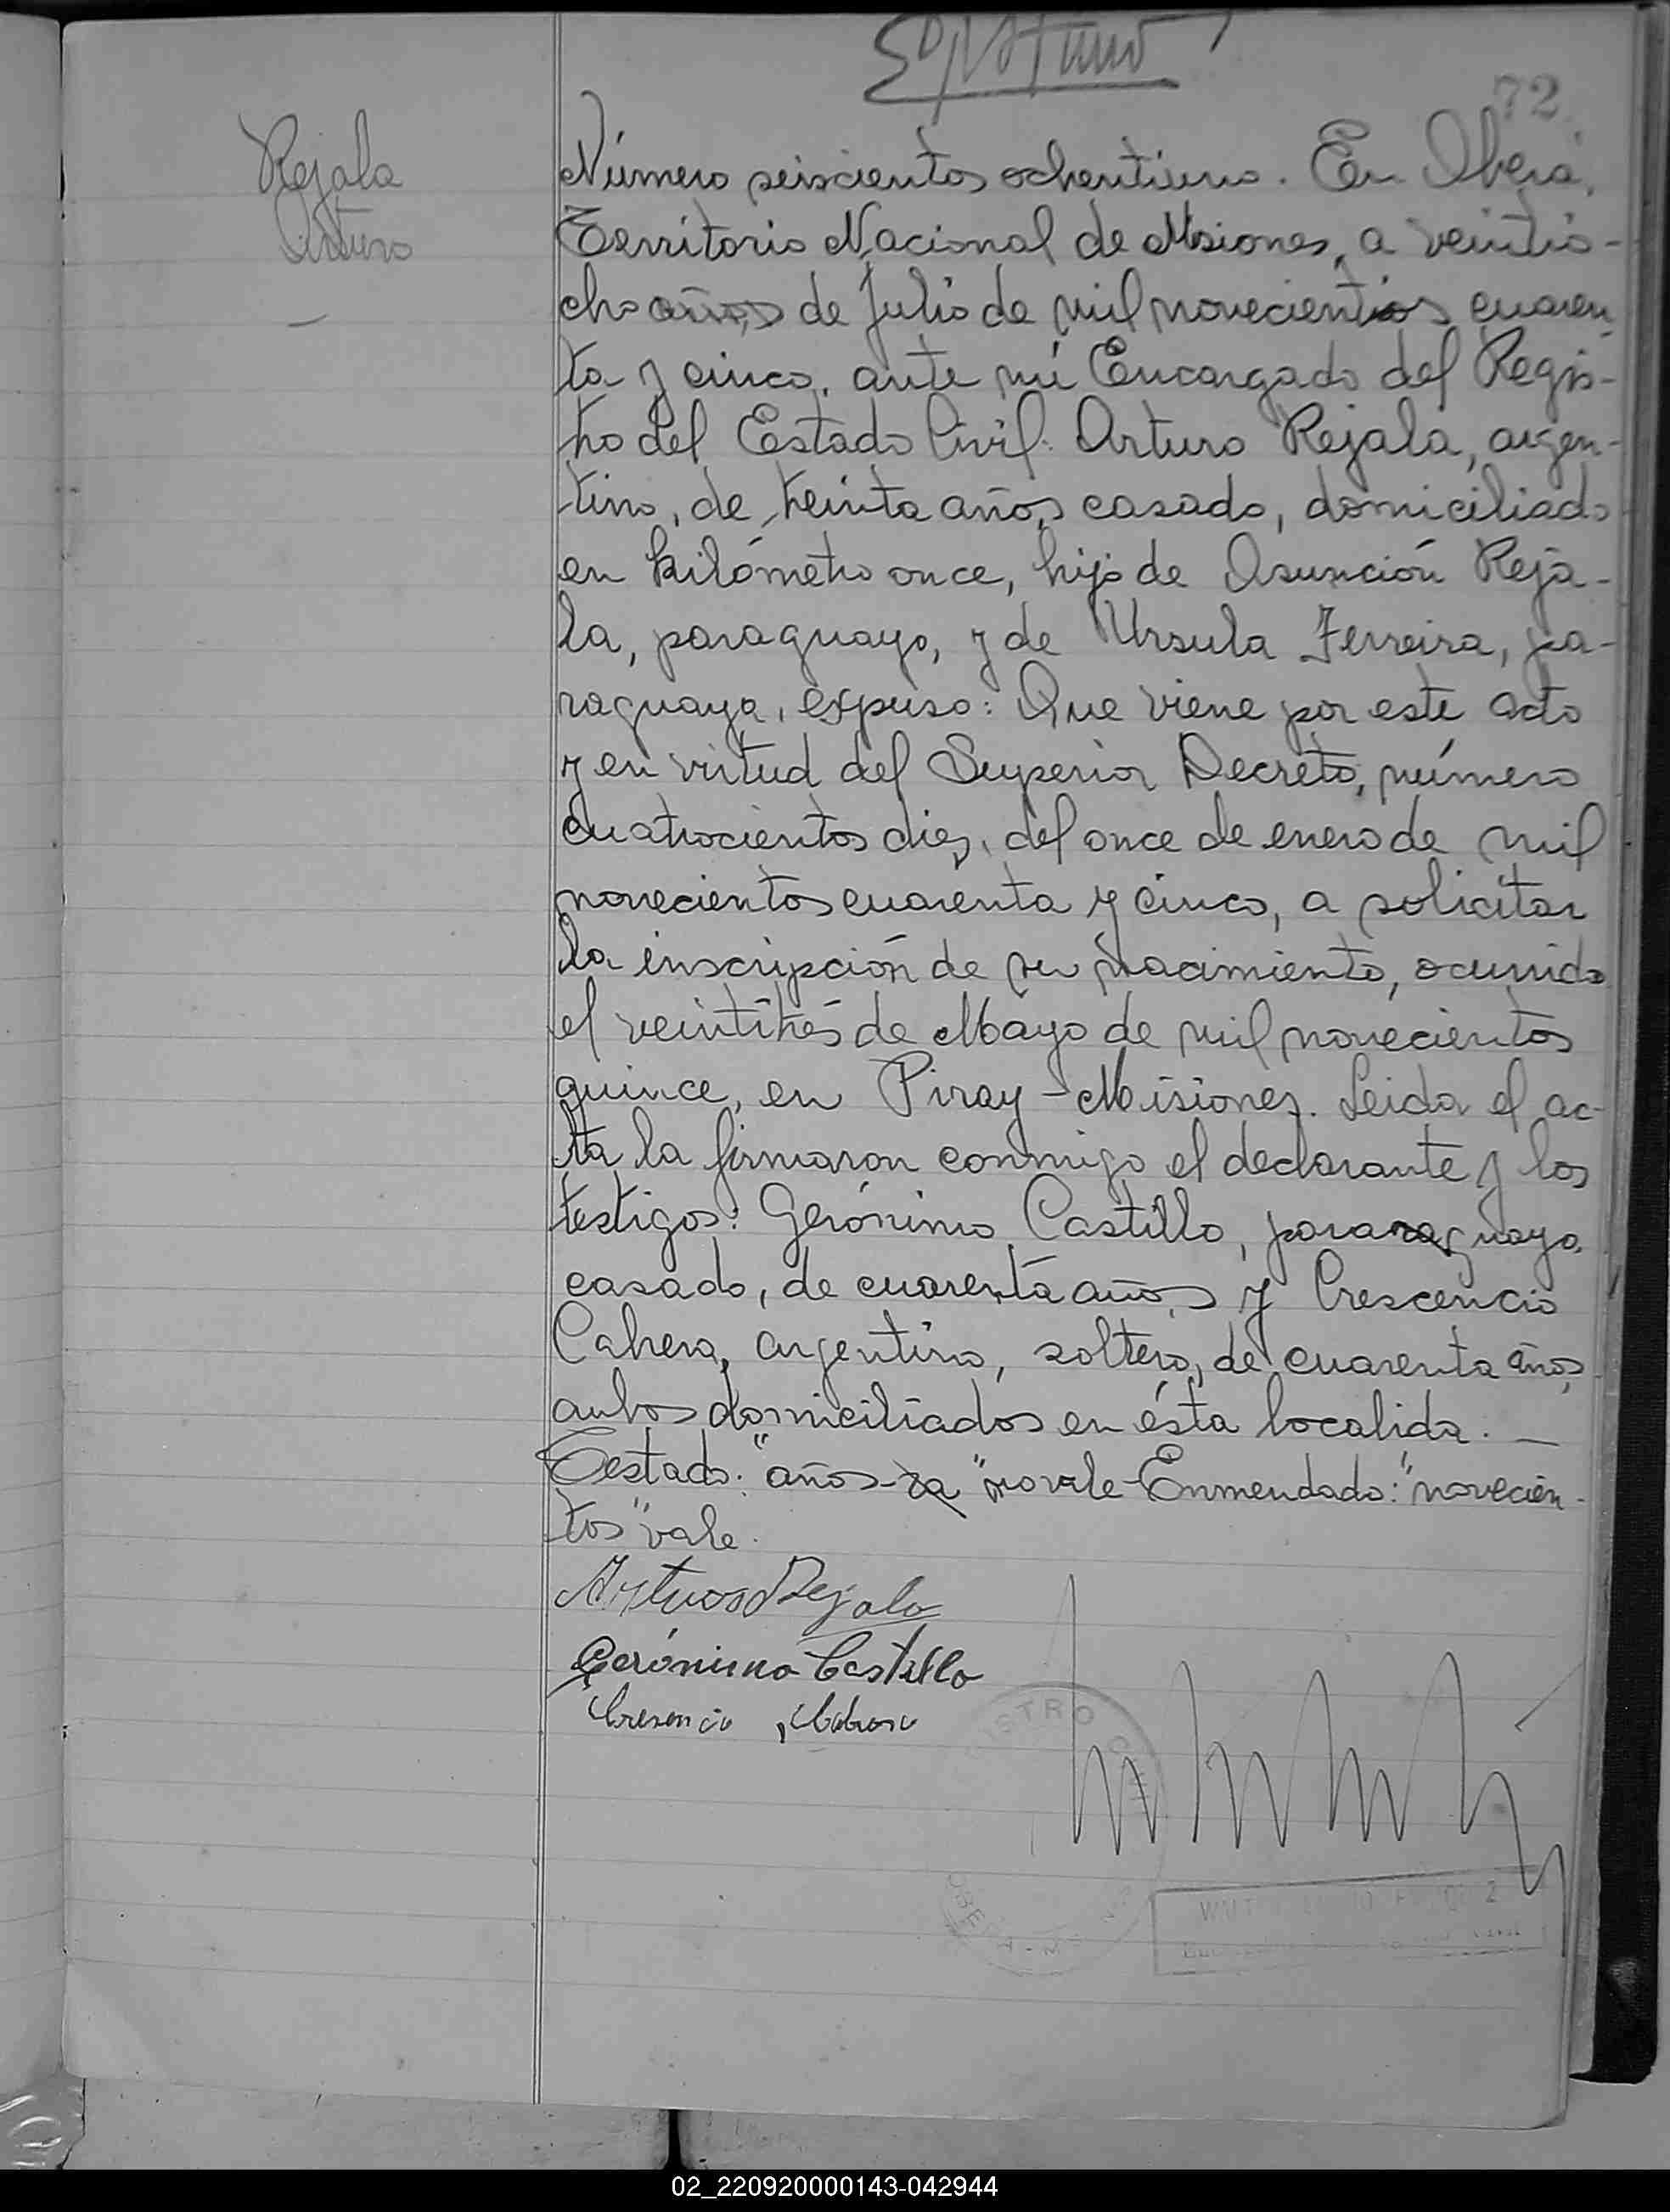 72
Rejala
Arturo
Número seiscientos ochentiuno. En Oberá,
Territorio Nacional de Misiones, a veintio-
cho años de Julio de mil novecientos cuaren
ta y cinco, ante mí Encargado del Regis-
tro del Estado Civil: Arturo Rejala, argen-
tino, de treinta años casado, domiciliado
en kilómetro once, hijo de Asunción Reja-
la, paraguayo, y de Ursula Ferreira, pa-
raguaya, expuso: Que viene por este acto
y en virtud del Superior Decreto, número
cuatrocientos diez, del once de enero de mil
novecientos cuarenta y cinco, a solicitar
la inscripción de su nacimiento, ocurrido
el veintitrés de Mayo de mil novecientos
quince, en Piray-Misiones. Leida el ac-
ta la firmaron conmigo el declarante y los
testigos: Gerónimo Castillo, pararaguayo,
casado, de cuarenta años y Crescencio
Cabrera, argentino, soltero, de cuarenta años,
ambos domiciliados en ésta localida. —
Testado: "años-ra" no vale-Enmendado: "novecien-
tos" vale.
Arturo Rejala
Gerónimo Castillo
REGISTRO CIVIL
OBERA-M
02_220920000143-042944